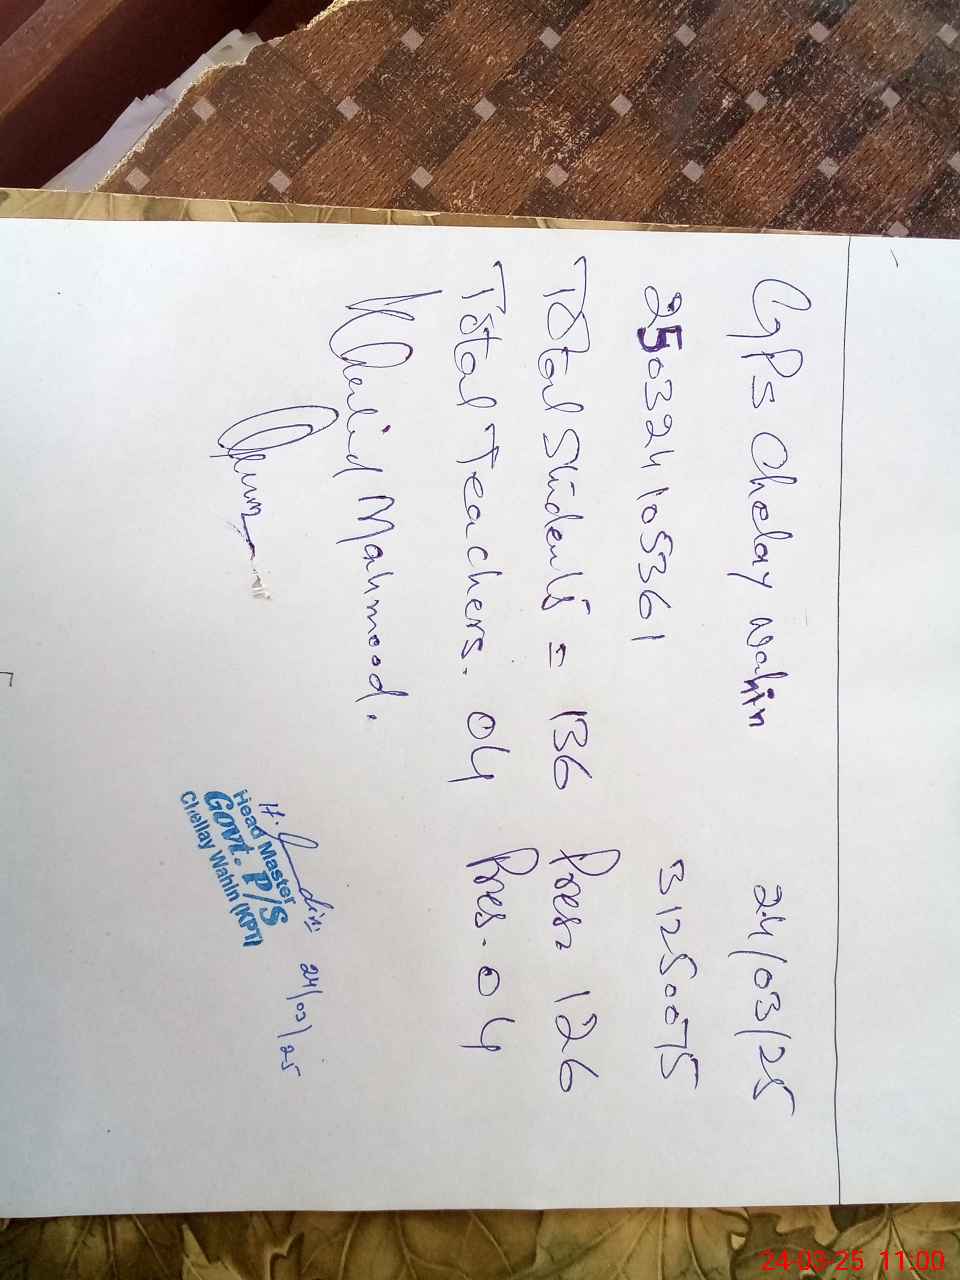 GPS Chelay wahin 24/03/25
250324105361 31250075
Total Students = 136 Pres= 126
Total Teachers. 04 Pres. 04
Khalid Mahmood.
24/03/25
Head Master
Govt. P/S
Chellay Wahin (KPT)
24-03-25 11:00